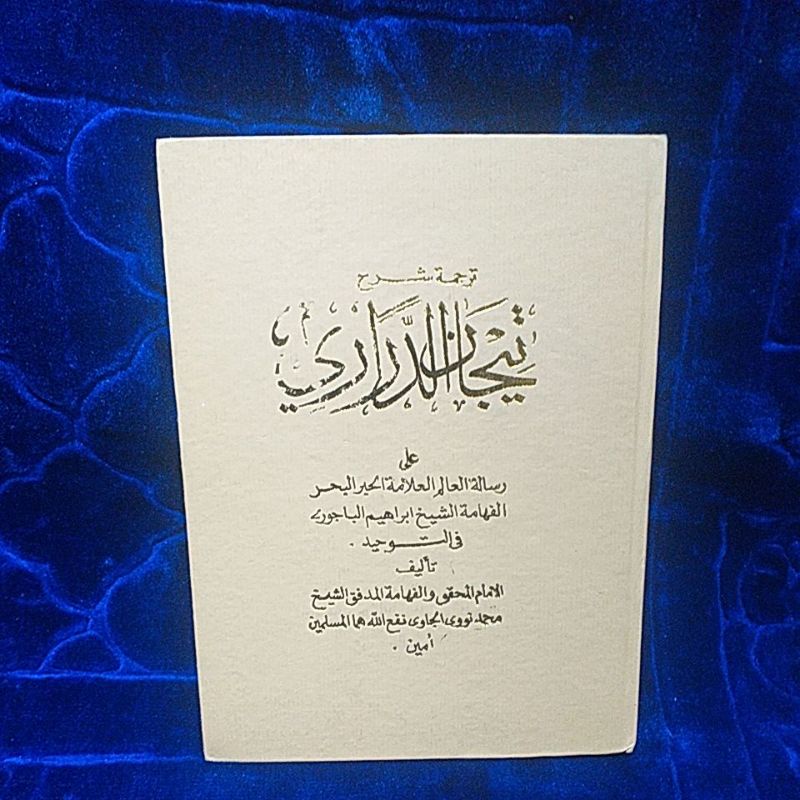 ترجمة شرح
تِيْجَانُ الدَّرَارِي
على
رسالة العالم العلامة الحبر البحر
الفهامة الشيخ ابراهيم الباجورى
فى التوحيد .
تأليف
الامام المحقق والفهامة المدقق الشيخ
محمد نووى الجاوى نفع الله بهما المسلمين
أمين .